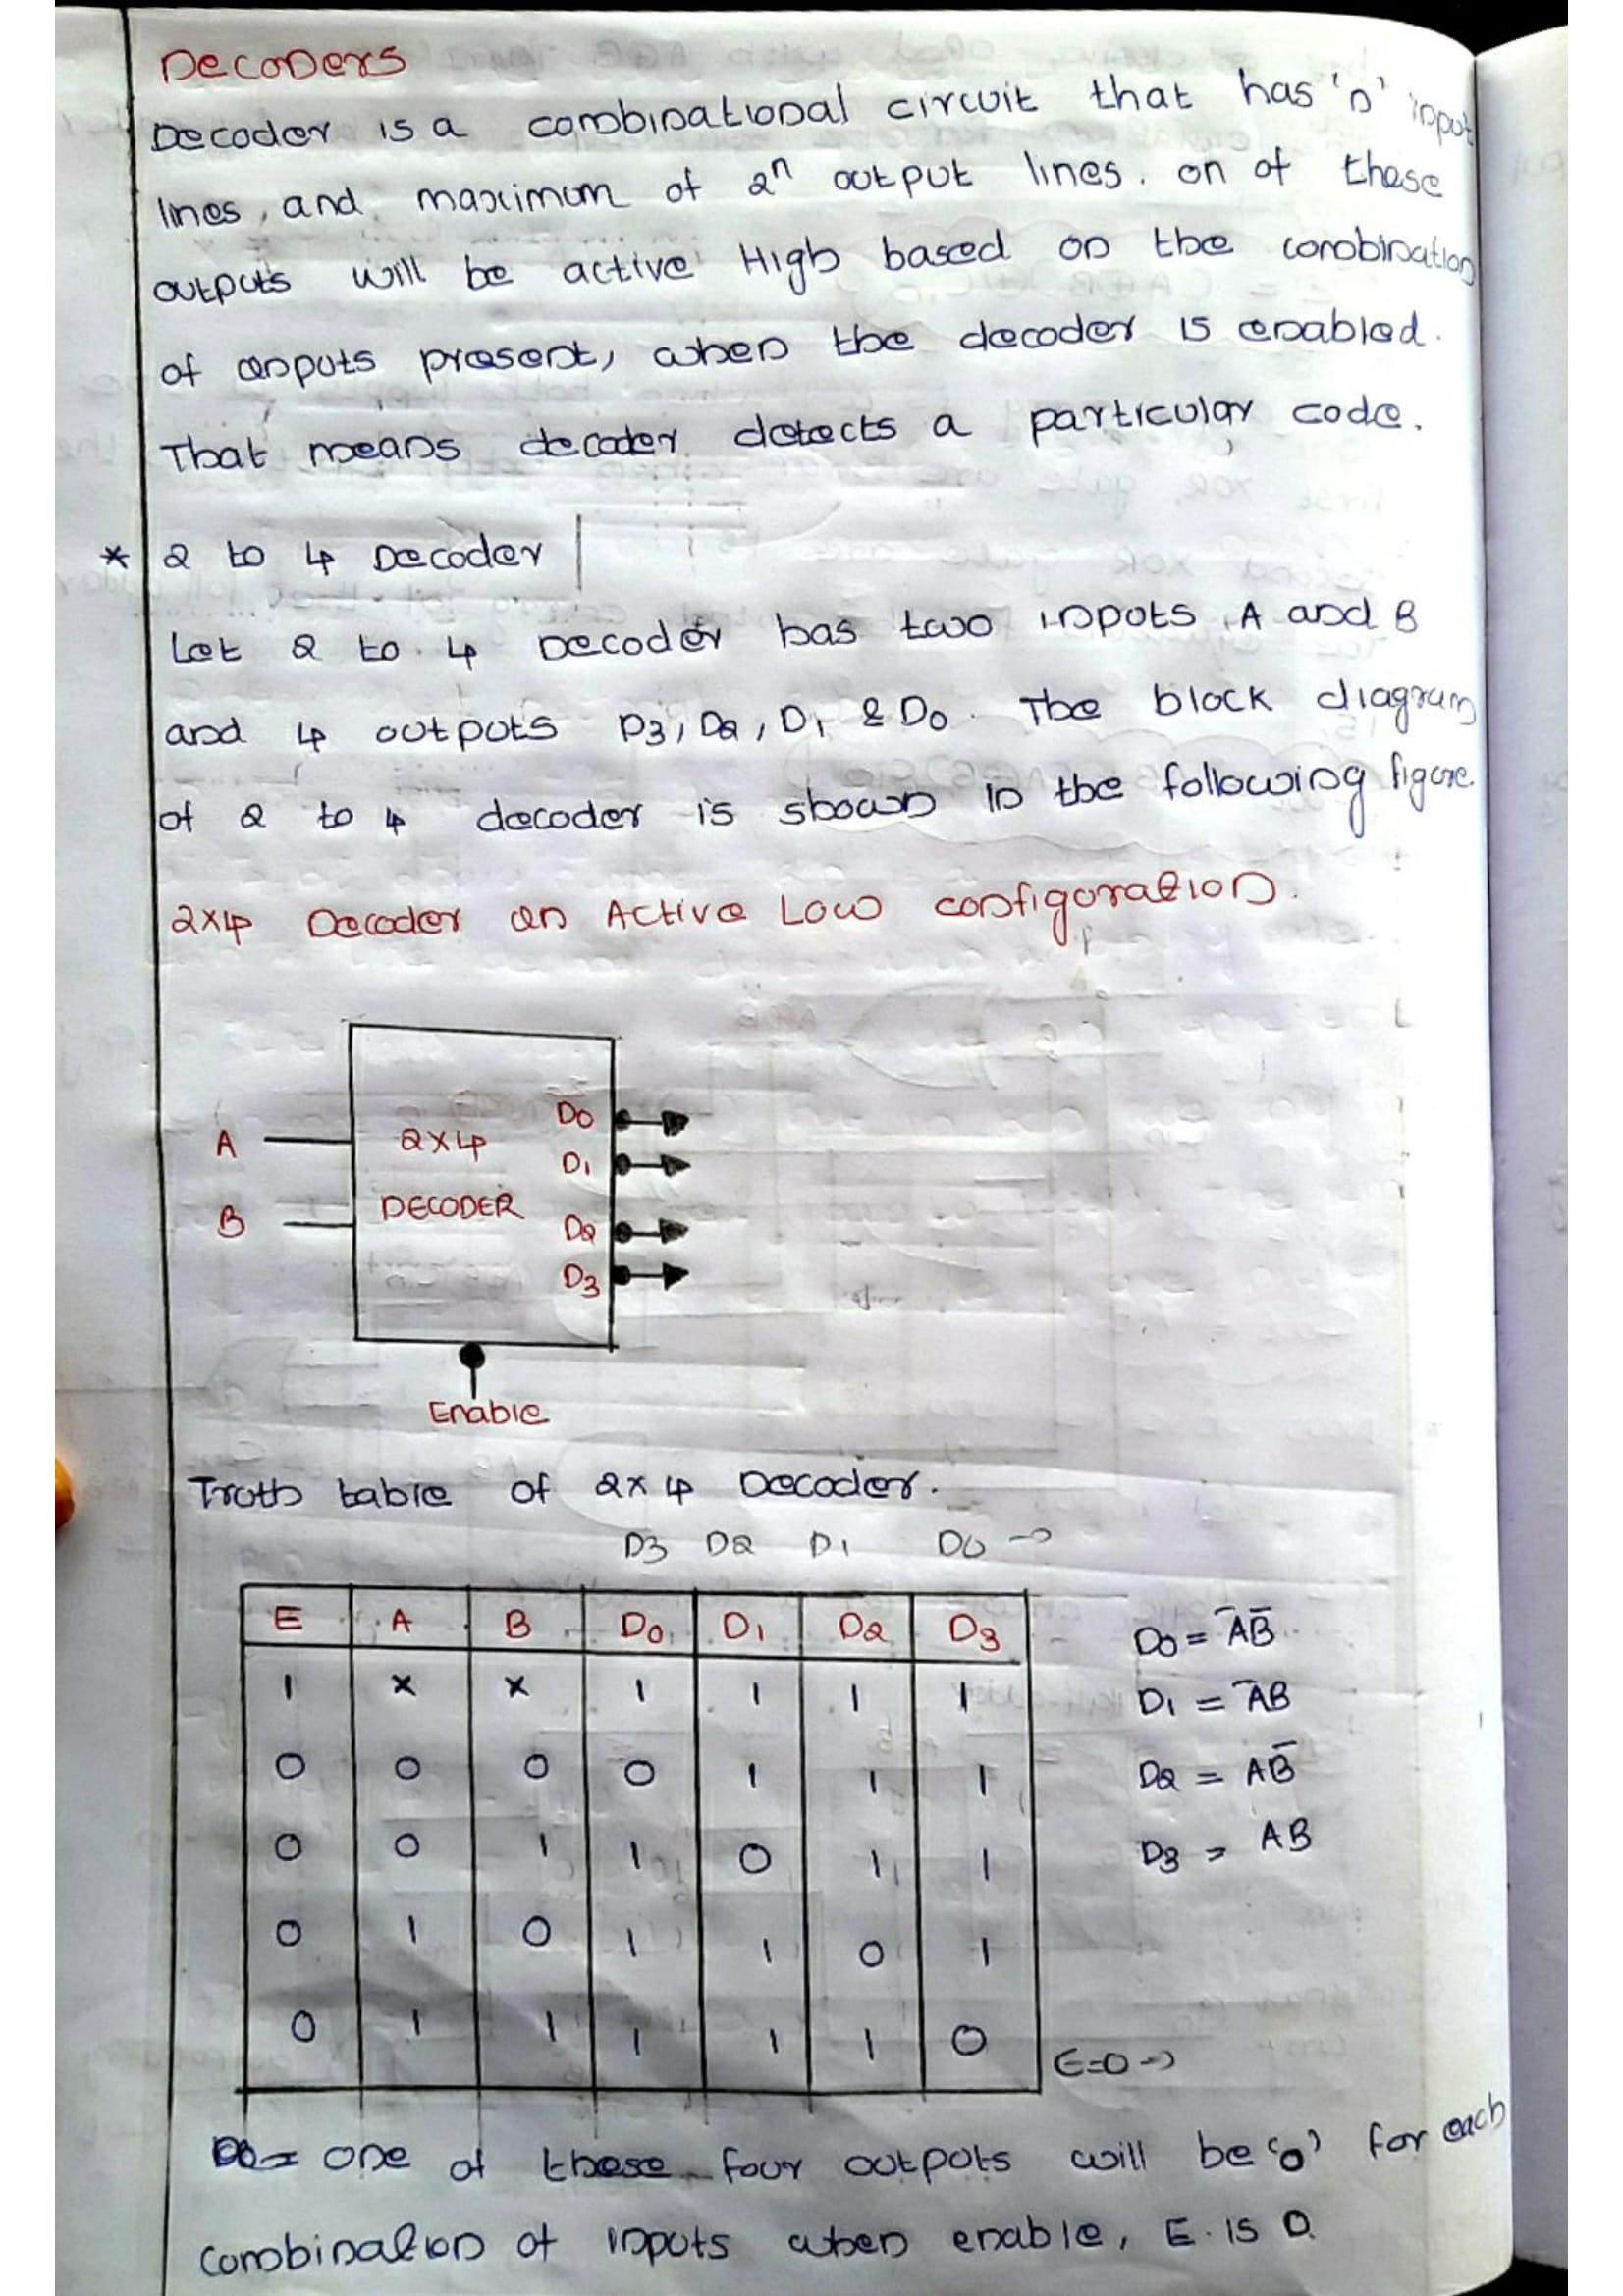 Decoders
Decoder is a combinational circuit that has 'n' input
lines, and maximum of 2ⁿ output lines. on of these
outputs will be active High based on the combination
of inputs present, when the decoder is enabled.
That means decoder detects a particular code.
* 2 to 4 Decoder
Let 2 to 4 Decoder has two inputs A and B
and 4 outputs D3, D2, D1 & D0. The block diagram
of 2 to 4 decoder is shown in the following figure.
2x4 Decoder in Active Low configuration.
A
B
2x4
DECODER
D0
D1
D2
D3
Enable
Truth table of 2x4 Decoder.
D3 D2 D1 D0 →
E A B D0 D1 D2 D3
1 x x 1 1 1 1
0 0 0 0 1 1 1
0 0 1 1 0 1 1
0 1 0 1 1 0 1
0 1 1 1 1 1 0
D0 = A̅B̅
D1 = A̅B
D2 = AB̅
D3 = AB
E=0 →
one of these four outputs will be '0' for each
combination of inputs when enable, E. is 0.